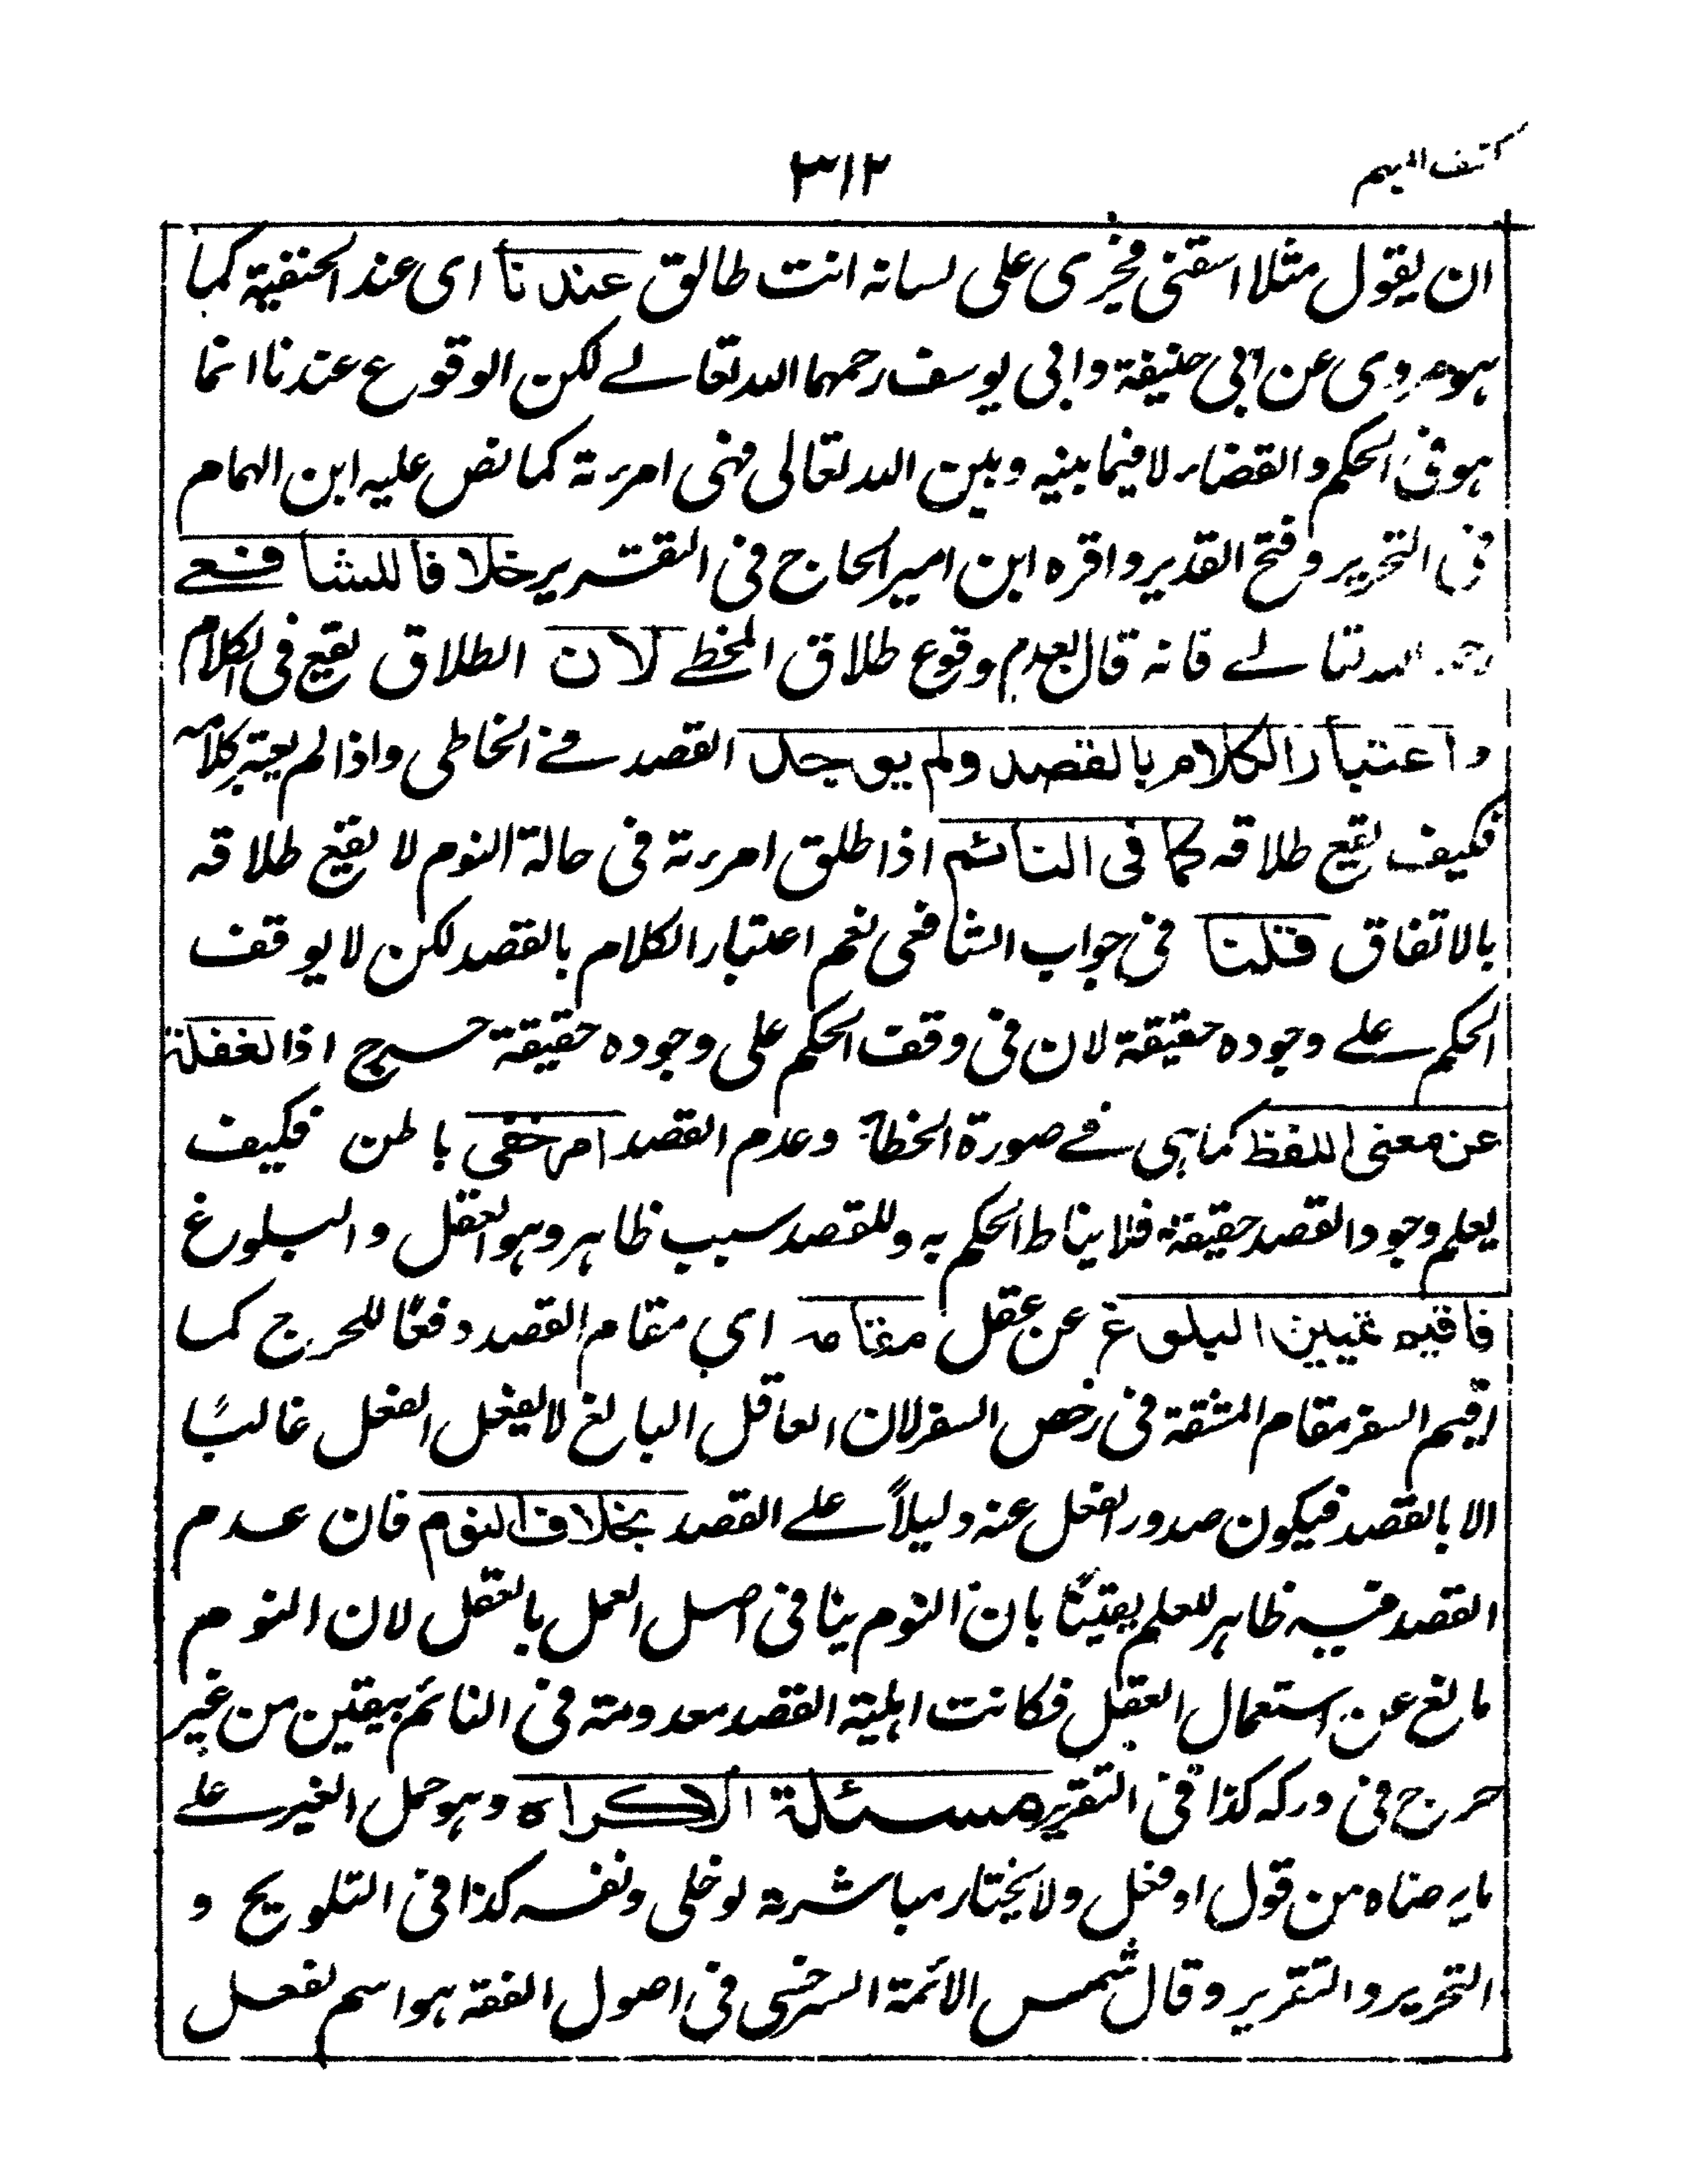 كشف المبهم
٣١٢
ان يقول مثلا اسقنى فجرى على لسانه انت طالق عندنا اى عند الحنفية كما
هو مروى عن ابى حنيفة وابى يوسف رحمهما الله تعالے لكن الوقوع عندنا انما
هو فى الحكم والقضاء لا فيما بينه وبين الله تعالى فهى امرءته كما نص عليه ابن الهمام
فى التحرير وفتح القدير واقره ابن امير الحاج فى التقرير خلافا للشافعے
رحمه الله تعالے فانه قال بعدم وقوع طلاق المخطے لان الطلاق يقع فى الكلام
واعتبار الكلام بالقصد ولم يوجد القصد فے الخاطى واذا لم يعتبر كلامه
فكيف يقع طلاقه كما فى النائم اذا طلق امرءته فى حالة النوم لا يقع طلاقه
بالاتفاق قلنا فى جواب الشافعى نعم اعتبار الكلام بالقصد لكن لا يوقف
الحكم علے وجوده حقيقة لان فى وقف الحكم على وجوده حقيقة حرج اذ الغفلة
عن معنى اللفظ كما هى فے صورة الخطأ وعدم القصد امر خفى باطن فكيف
يعلم وجود القصد حقيقة فلا يناط الحكم به وللقصد سبب ظاهر وهو العقل والبلوغ
فاقيم تمييز البلوغ عن عقل مقامه اى مقام القصد دفعًا للحرج كما
اقيم السفر مقام المشقة فى رخص السفر لان العاقل البالغ لا يفعل الفعل غالبًا
الا بالقصد فيكون صدور الفعل عنه دليلاً علے القصد بخلاف النوم فان عدم
القصد فيه ظاهر للعلم يقينًا بان النوم ينافى اصل العمل بالعقل لان النوم
مانع عن استعمال العقل فكانت اهلية القصد معدومة فى النائم بيقين من غير
حرج فى دركه كذا فى التقرير مسئلة الاكراه وهو حمل الغير علے
ما يرضاه من قول او فعل ولا يختار مباشرته لو خلى ونفسه كذا فى التلويح و
التحرير والتقرير وقال شمس الائمة السرخسى فى اصول الفقه هو اسم لفعل